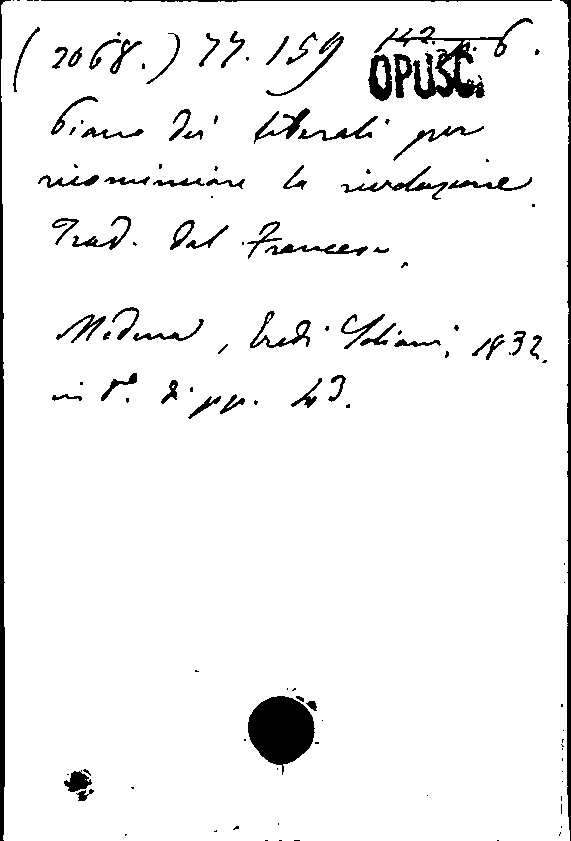 (2068.) 77.159 142. p. 6.
OPUSC.
Piano dei liberali per
ricominciare la rivoluzione
Trad. dal Francese.
Modena, Eredi Soliani, 1832.
in 8°. di pp. 43.